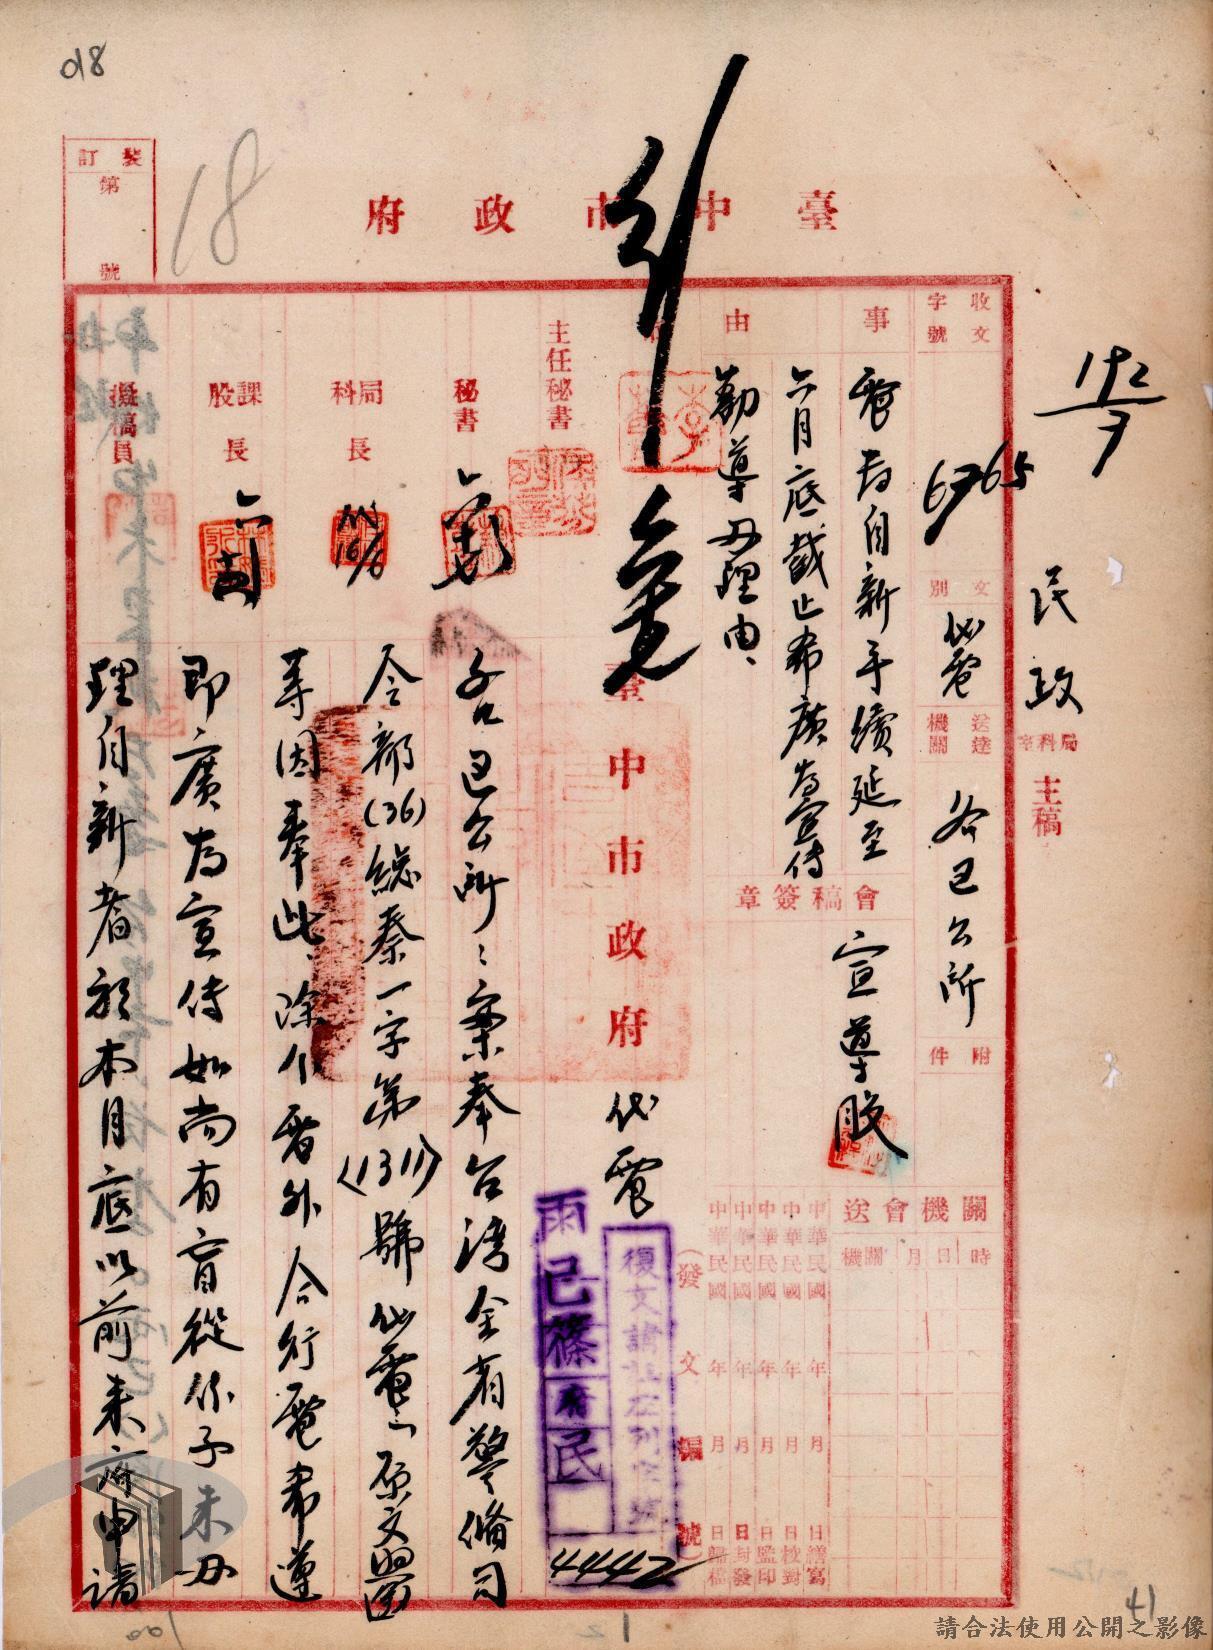 018
18
裝訂
第
號
臺中市政府
192/7
民政局科室主稿
收文
字號
6765
文別
代電
送達
機關
各區公所
附件
事由
電為自新手續延至
六月底截止希廣為宣傳
勸導办理由、
會稿簽章
宣導股
關機會送
時
日
月
關機
中華民國 年 月 日繕寫
中華民國 年 月 日校對
中華民國 年 月 日監印
中華民國 年 月 日封發
中華民國 年 月 日歸檔
(發文編號)
主任秘書
秘書
局科長
16/6
課股長
擬稿員
臺中市政府代電
雨巳篠府民
4442
各區公所:案奉台灣全省警備司
令部(36)總秦一字第(1311)號代電「原文照函」
等因奉此、除分電外合行電希遵
即廣為宣傳如尚有盲從份子未办
理自新者於本月底以前来府申請
41
請合法使用公開之影像